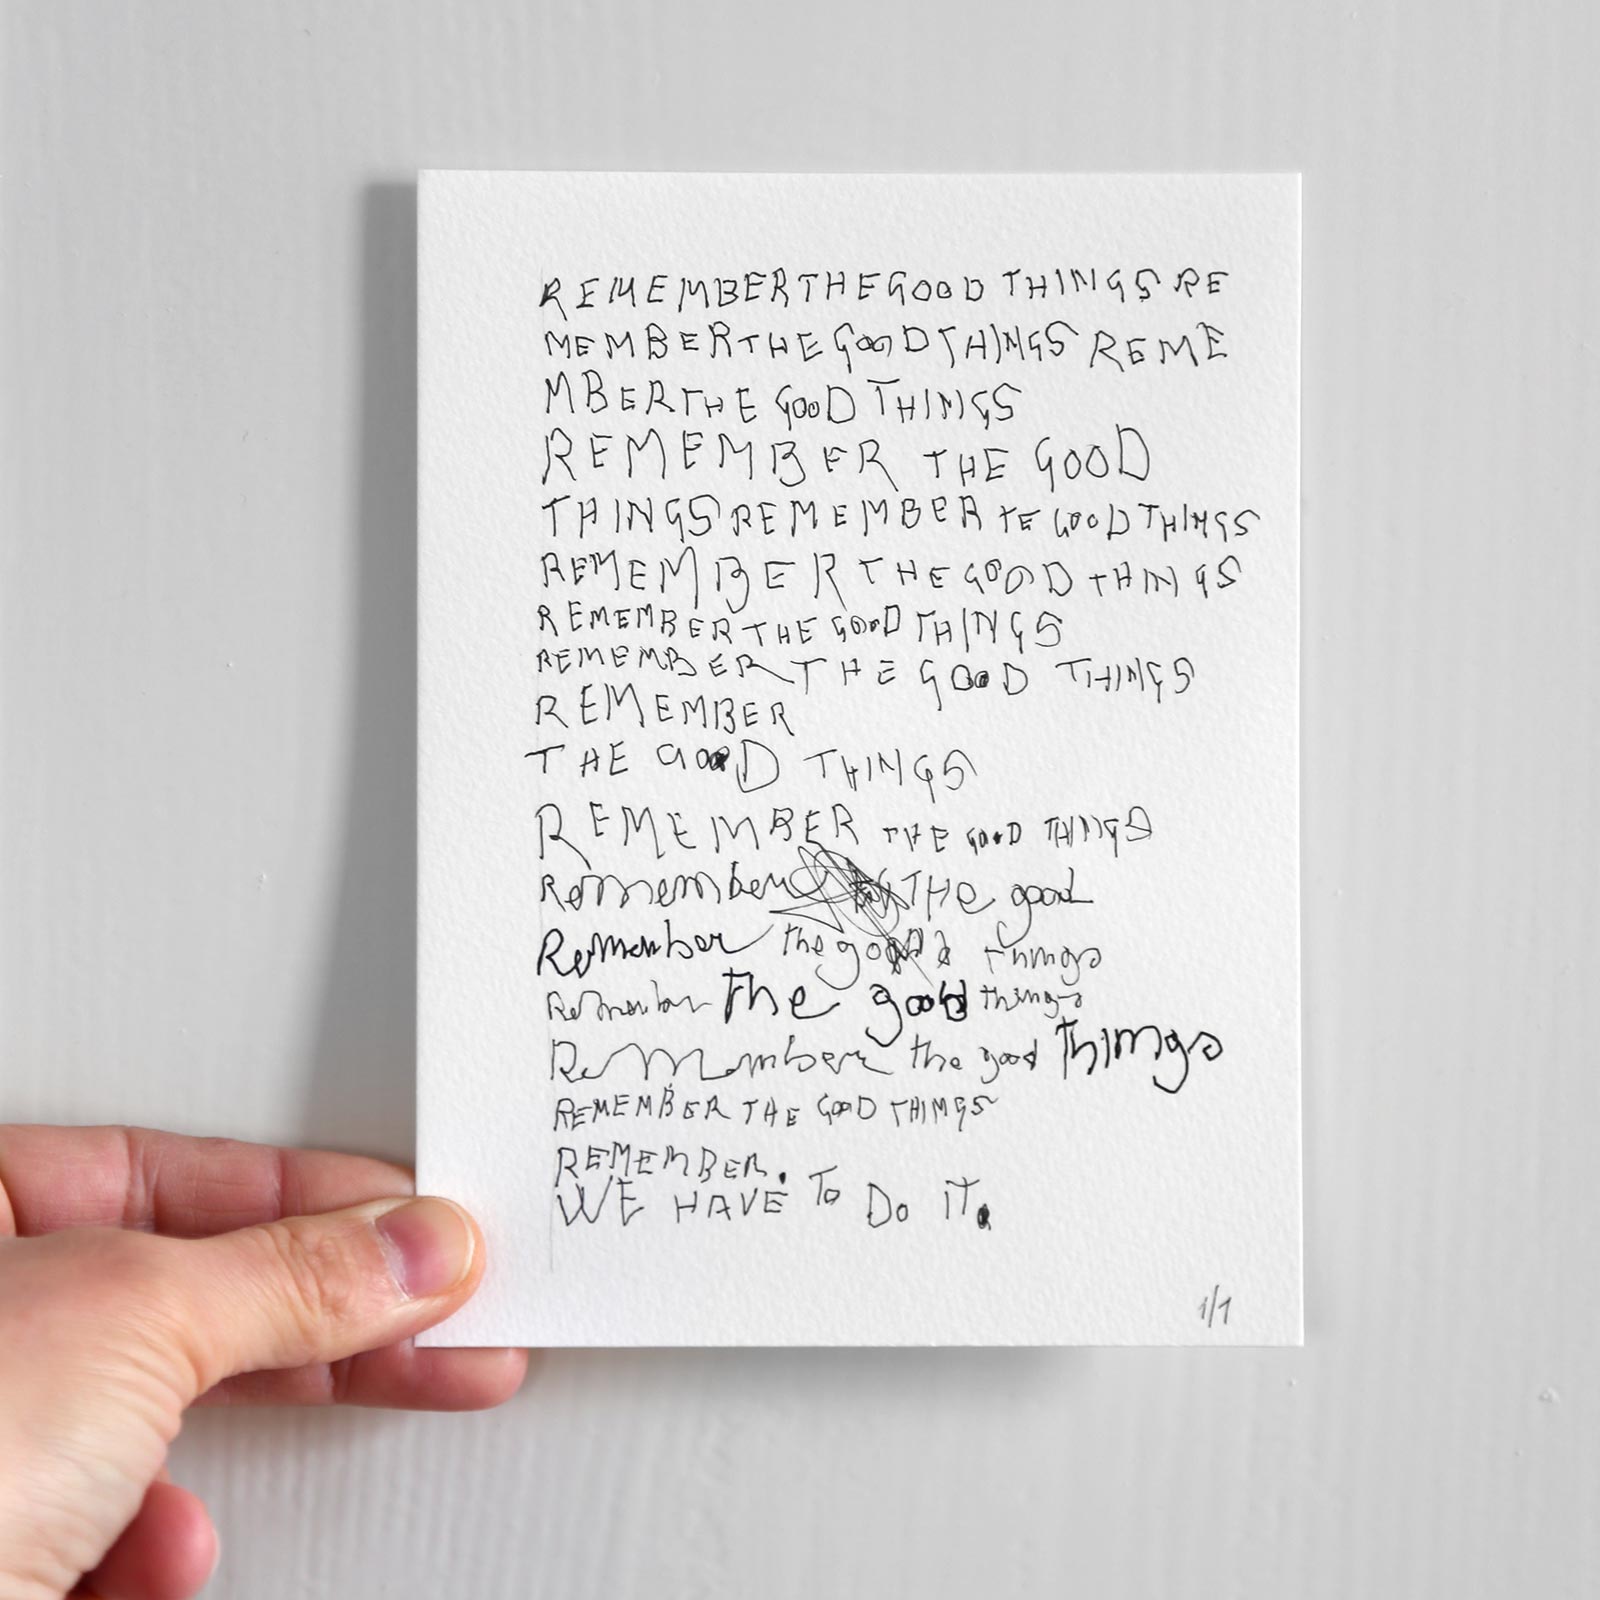 REMEMBERTHEGOOD THINGS RE
MEMBERTHEGOODTHINGS REME
MBERTHE GOOD THINGS
REMEMBER THE GOOD
THINGSREMEMBER TE GOODTHINGS
REMEMBER THEGOOD THINGS
REMEMBERTHE GOODTHINGS
REMEMBER THE GOOD THINGS
REMEMBER
THE GOOD THINGS
REMEMBER THE GOOD THINGS
Remember THe good
Remember the good things
Remember the good things
Remember the good things
REMEMBER THE GOOD THINGS
REMEMBER.
WE HAVE To Do iT.
1/1